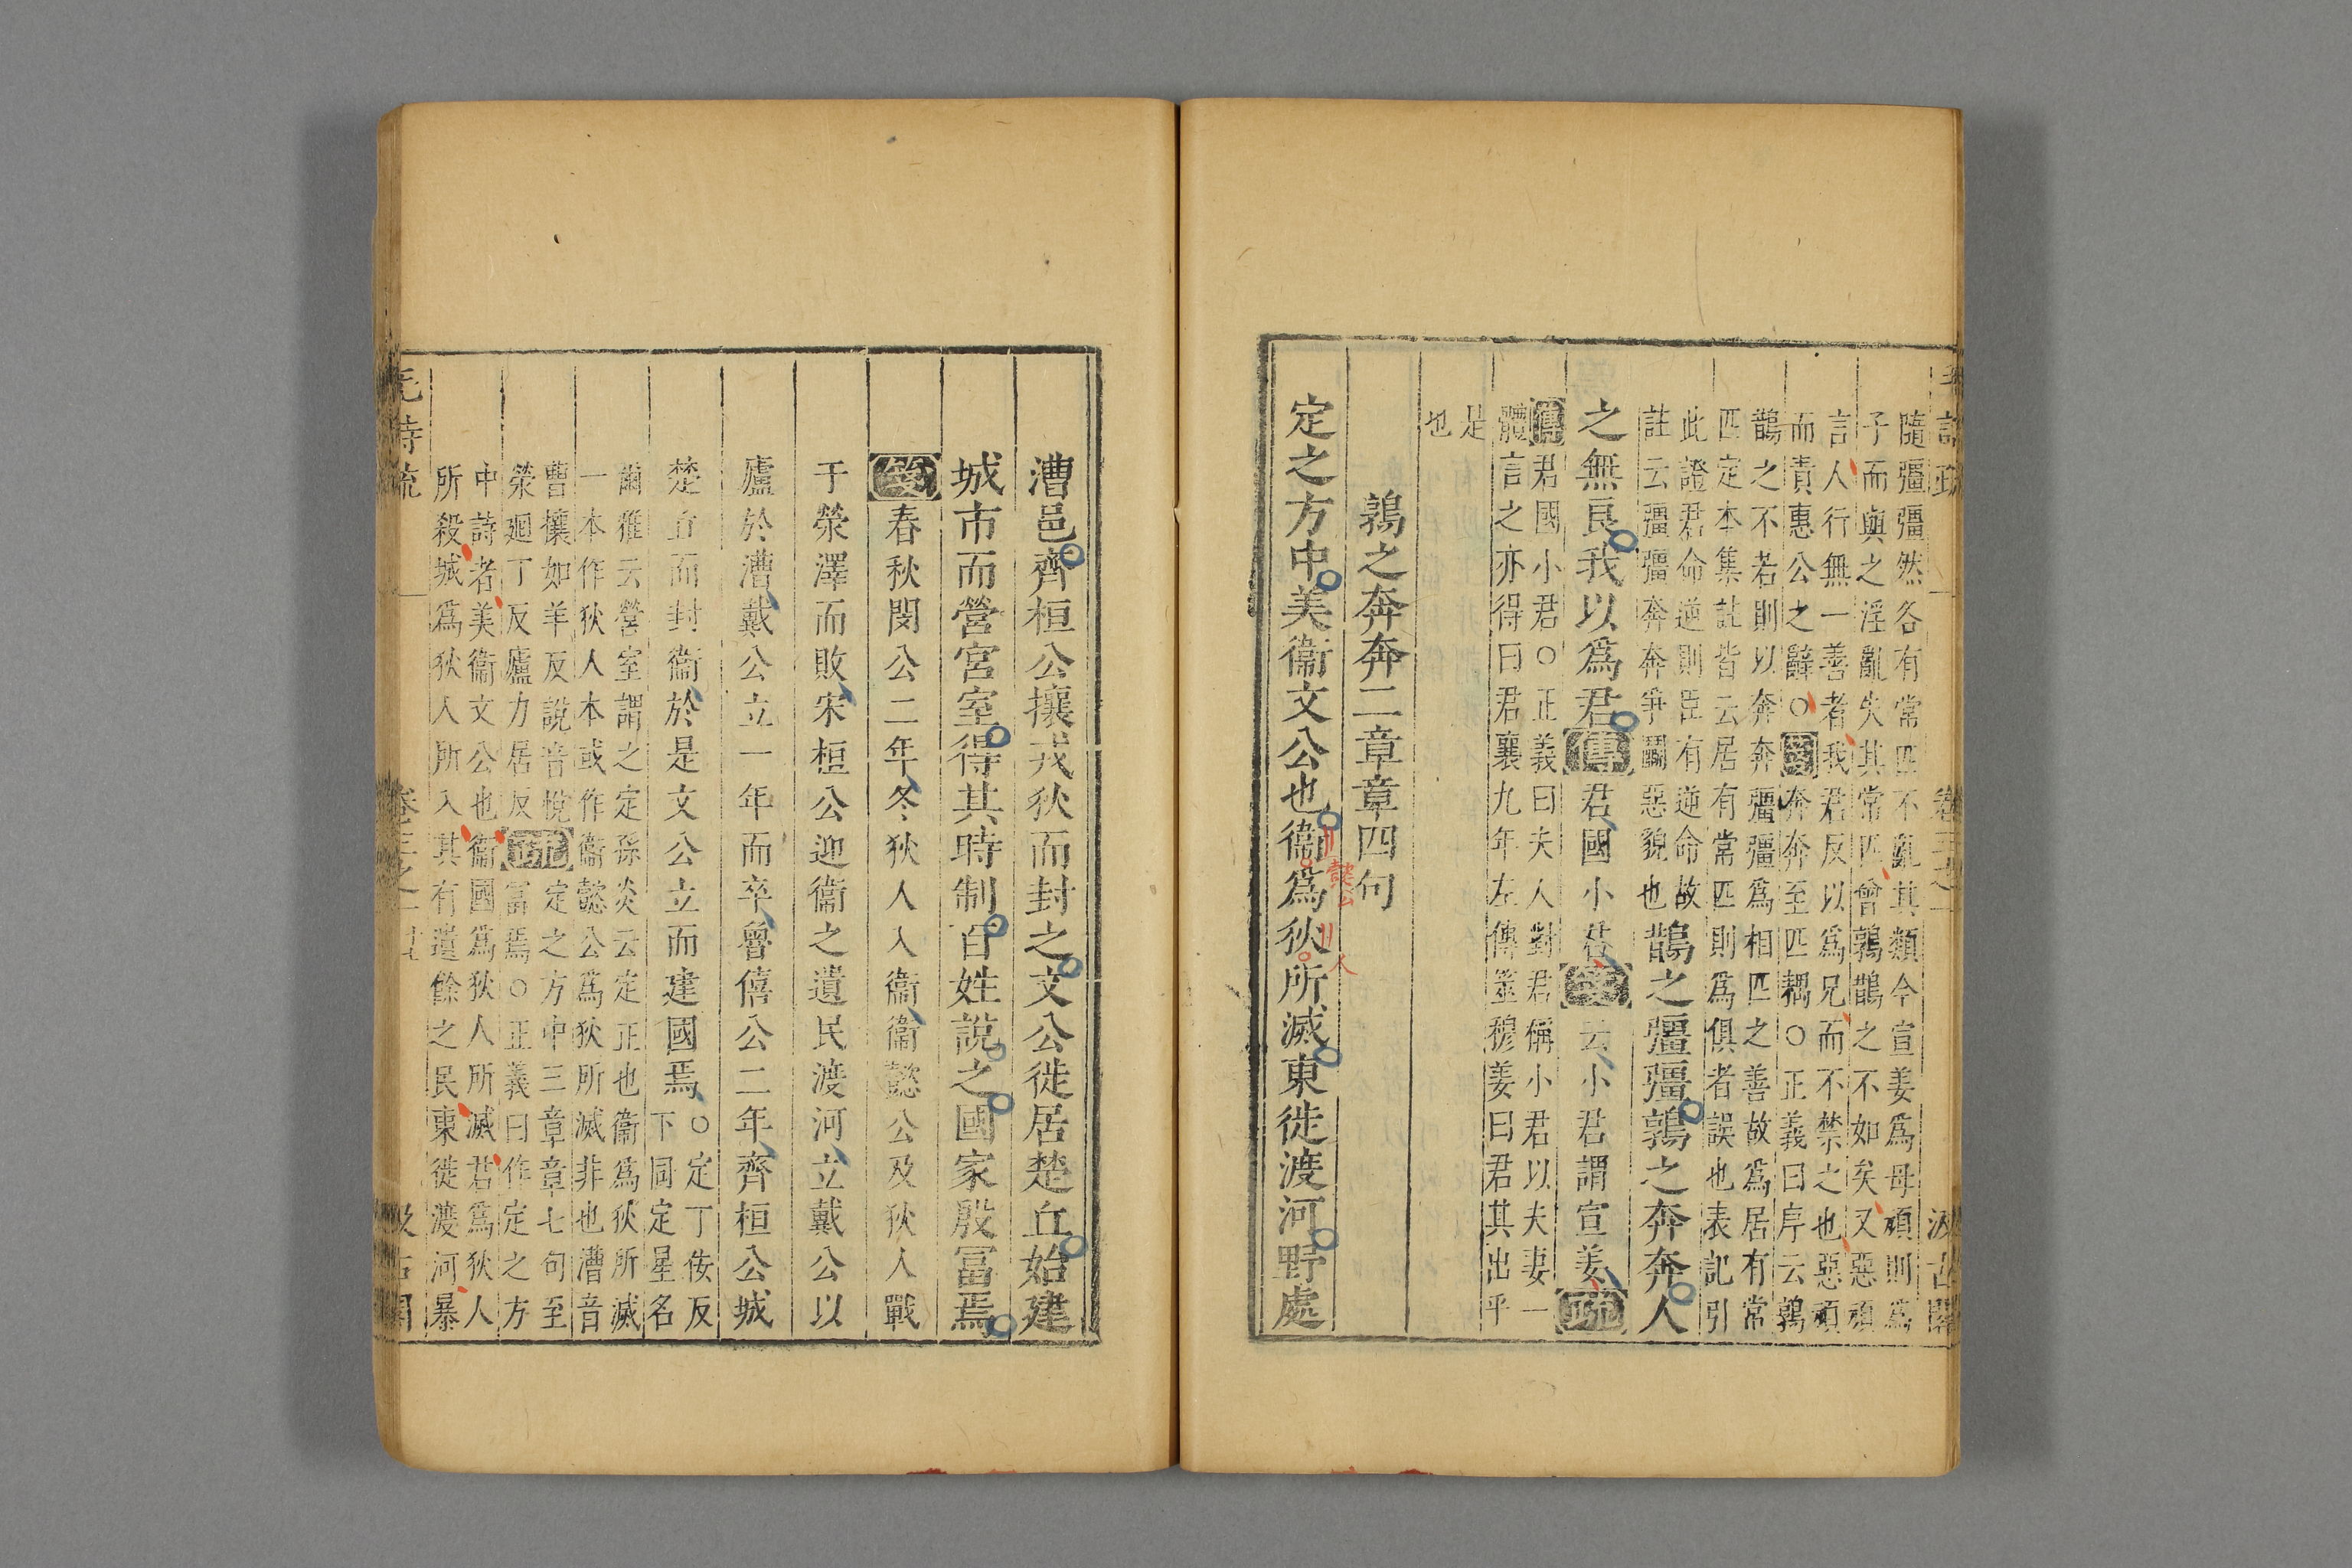 隨彊彊然各有常匹不亂其類今宣姜爲母頑則爲
子而與之淫亂失其常匹曾鶉鵲之不如矣又惡頑
言人行無一善者我君反以爲兄而不禁之也惡頑
而責惠公之辭○箋奔奔至匹耦○正義曰序云鶉
鵲之不若則以奔奔彊彊爲相匹之善故爲居有常
匹定本集註皆云居有常匹則爲俱者誤也表記引
此證君命逆則臣有逆命故
註云彊彊奔奔爭鬬惡貌也
鵲之彊彊鶉之奔奔人
之無良我以爲君傳君國小君箋云小君謂宣姜疏
傳君國小君○正義曰夫人對君稱小君以夫妻一
體言之亦得曰君襄九年左傳筮穆姜曰君其出乎
是
也
鶉之奔奔二章章四句
定之方中美衞文公也衞爲狄所滅東徙渡河野處
懿公
人
漕邑齊桓公攘戎狄而封之文公徙居楚丘始建
城市而營宮室得其時制百姓說之國家殷富焉
箋春秋閔公二年冬狄人入衞衞懿公及狄人戰
于熒澤而敗宋桓公迎衞之遺民渡河立戴公以
廬於漕戴公立一年而卒魯僖公二年齊桓公城
楚丘而封衞於是文公立而建國焉
○定丁佞反
下同定星名
爾雅云營室謂之定孫炎云定正也衞爲狄所滅
一本作狄人本或作衞懿公爲狄所滅非也漕音
曹攘如羊反說音悅
熒迴丁反廬力居反
疏定之方中三章章七句至
富焉○正義曰作定之方
中詩者美衞文公也衞國爲狄人所滅君爲狄人
所殺城爲狄人所入其有遺餘之民東徙渡河暴
毛詩疏
卷三之一
汲古閣